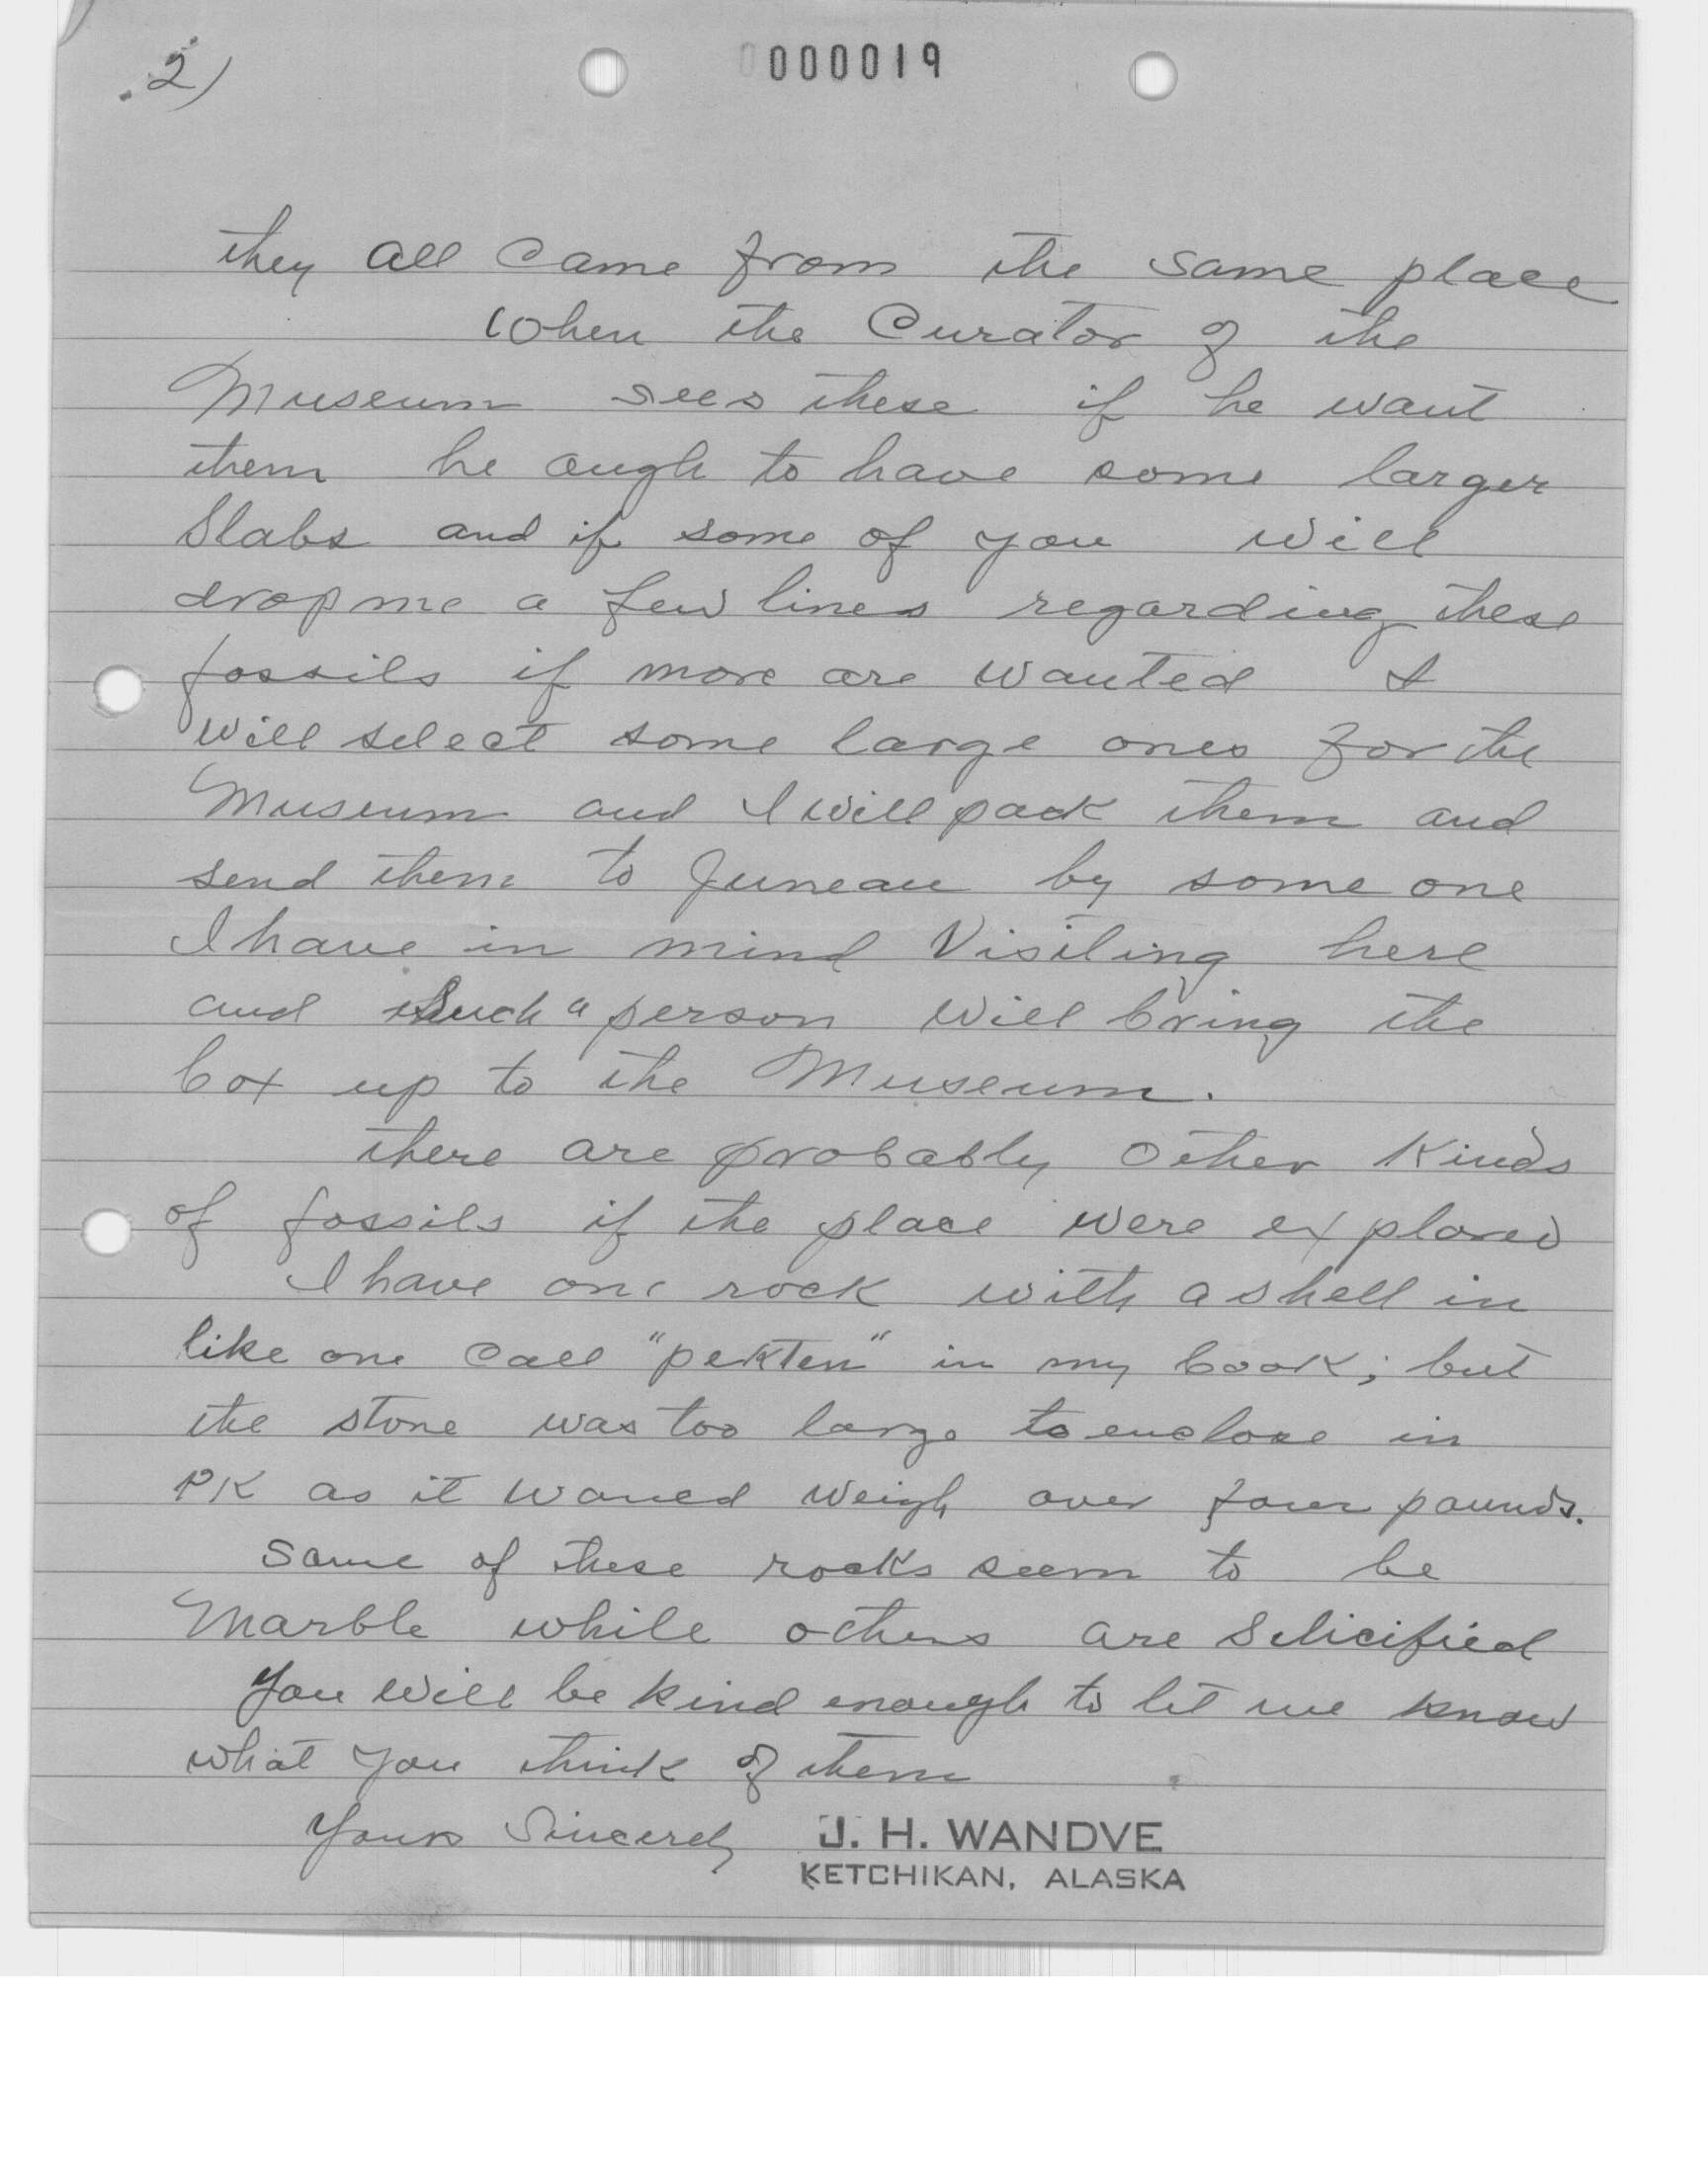 2)
000019
they all came from the same place
When the Curator of the
Museum sees these if he want
them he ough to have some larger
Slabs and if some of you will
drop me a few lines regarding these
fossils if more are wanted I
will select some large ones for the
Museum and I will pack them and
send them to Juneau by some one
I have in mind Visiting here
and Such a person will bring the
box up to the Museum.
there are probably other Kinds
of fossils if the place were explored
I have one rock with a shell in
like one call "pekten" in my book; but
the stone was too large to enclose in
PK as it would weigh over four pounds.
Some of these rocks seem to be
Marble while others are Silicified
You will be kind enough to let me know
what you think of them
Yours Sincerely J. H. WANDVE
KETCHIKAN, ALASKA